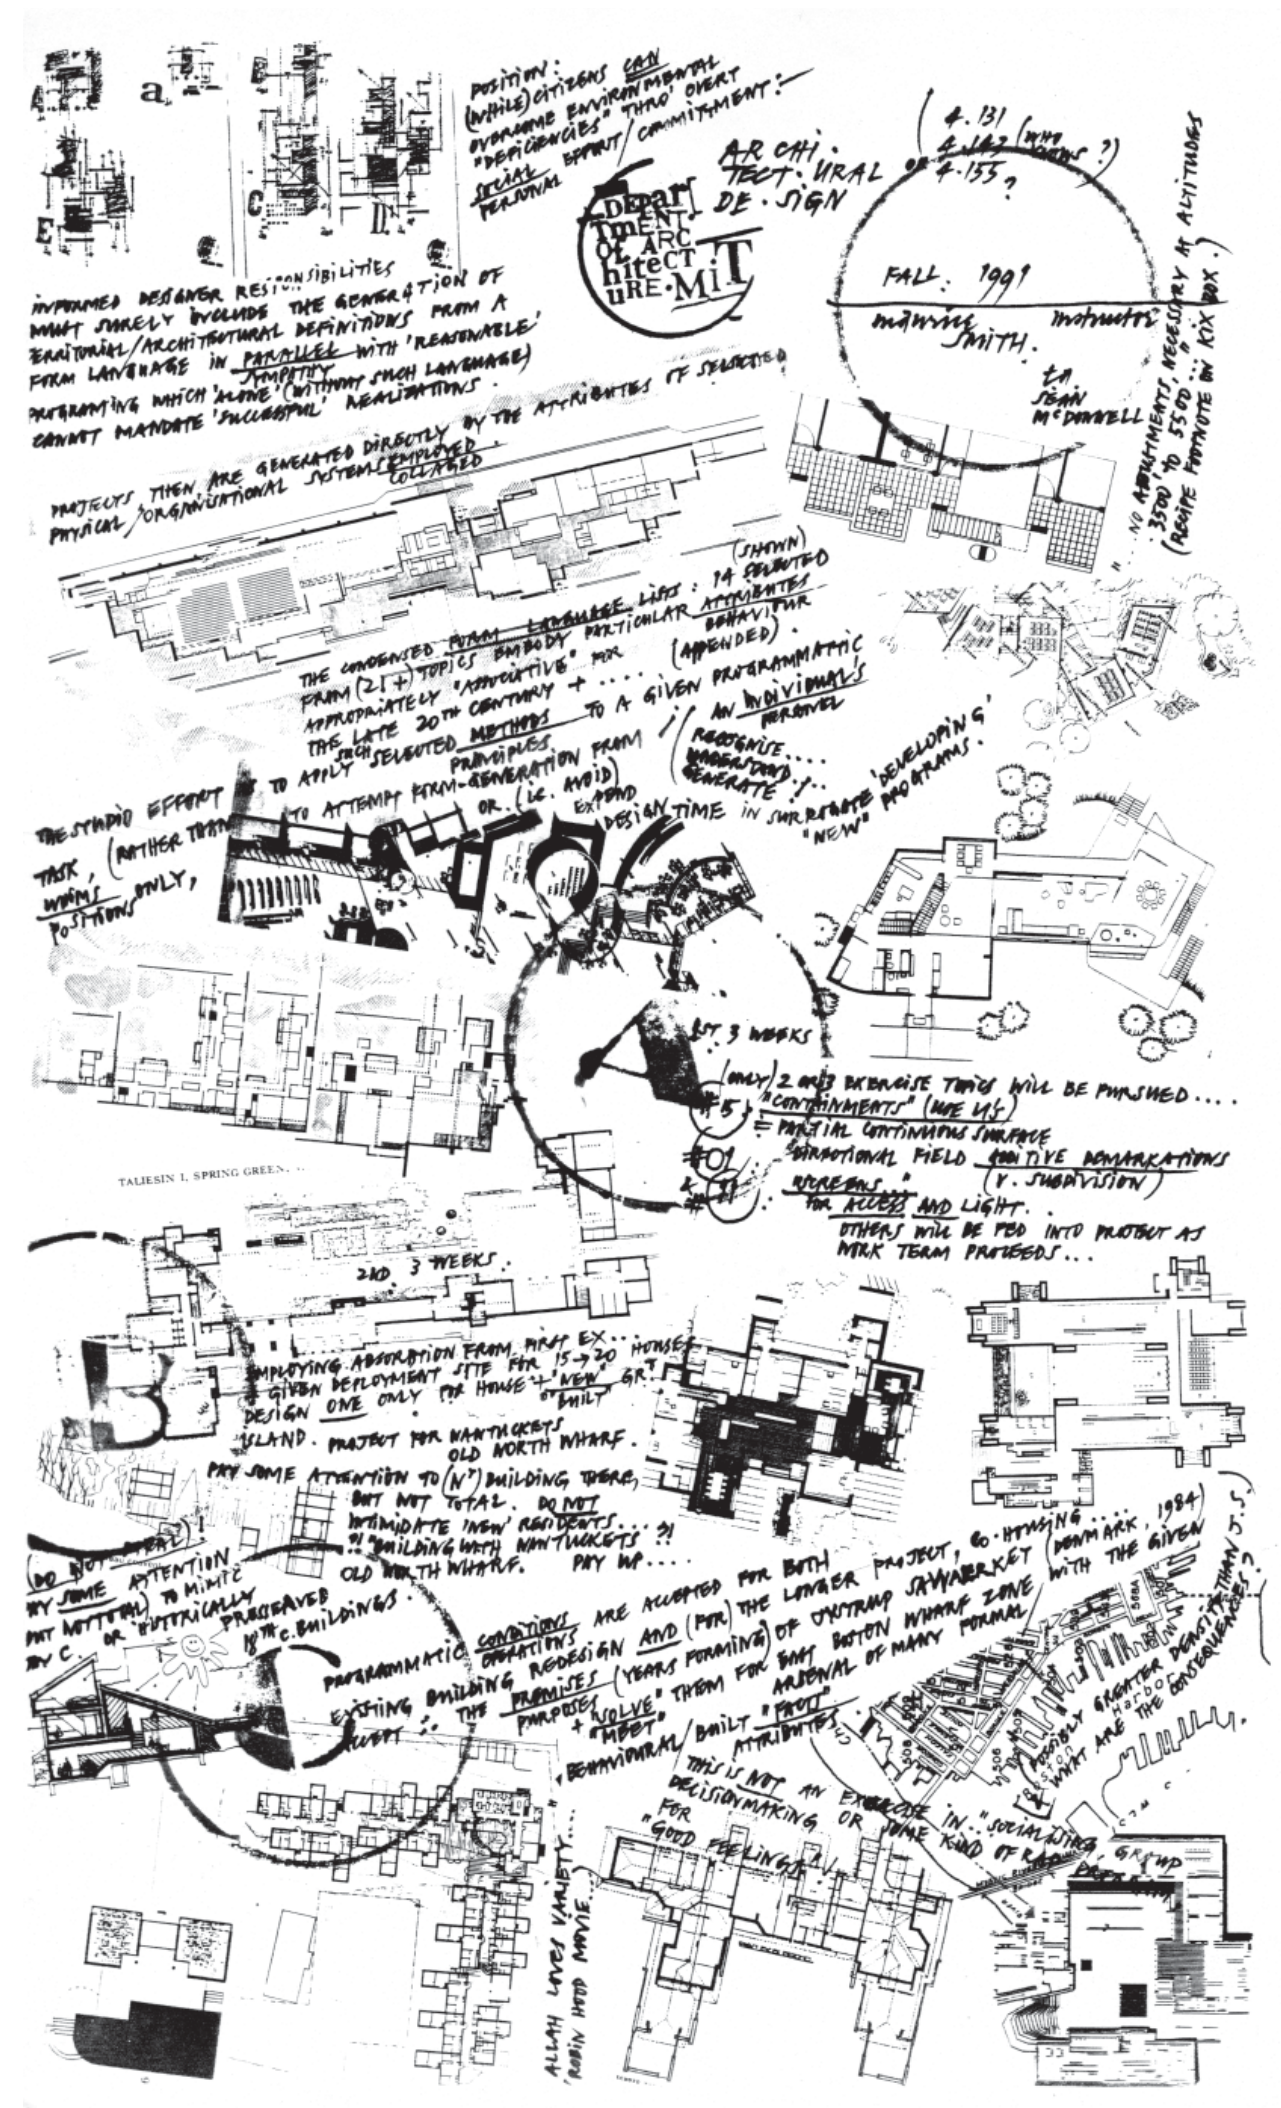 a.
C
D.
E
POSITION:
(WHILE) CITIZENS CAN
OVERCOME ENVIRONMENTAL
"DEFICIENCIES" THRO' OVERT
SOCIAL EFFORT / COMMITMENT:-
PERSONAL
DEPAR
TMENT
OF ARC
hiteCT
URE·MiT
ARCHI·
TECT·URAL
DE·SIGN
4.131
or 4.147 (WHO KNOWS?)
4.155
?
FALL: 1991
maurice instructor
SMITH.
ta
SEAN
McDONNELL
"... NO ADJUSTMENTS NECESSARY AT ALTITUDES
3500' TO 5500'..."
(RECIPE FOOTNOTE ON KIX BOX.)
INFORMED DESIGNER RESPONSIBILITIES
MUST SURELY INCLUDE THE GENERATION OF
TERRITORIAL/ARCHITECTURAL DEFINITIONS FROM A
FORM LANGUAGE IN PARALLEL WITH 'REASONABLE'
SYMPATHY
PROGRAMING WHICH 'ALONE' (WITHOUT SUCH LANGUAGE)
CANNOT MANDATE 'SUCCESSFUL' REALIZATIONS.
PROJECTS THEN ARE GENERATED DIRECTLY BY THE ATTRIBUTES OF SELECTED
PHYSICAL/ORGANISATIONAL SYSTEMS EMPLOYED.
COLLAGED
(SHOWN)
THE CONDENSED FORM LANGUAGE LISTS: 14 SELECTED
FROM (21+) TOPICS EMBODY PARTICULAR ATTRIBUTES
APPROPRIATELY "ASSOCIATIVE" FOR BEHAVIOUR
THE LATE 20TH CENTURY + .... (APPENDED).
THE STUDIO EFFORT IS TO APPLY SUCH SELECTED METHODS TO A GIVEN PROGRAMMATIC
PRINCIPLES
TASK, (RATHER THAN TO ATTEMPT FORM-GENERATION FROM AN INDIVIDUAL'S
PERSONEL
WHIMS ONLY, OR (I.E. AVOID)
POSITIONS
RECOGNISE....
UNDERSTAND...
GENERATE!
EXPEND
DESIGN TIME IN SURROGATE 'DEVELOPING'
"NEW" PROGRAMS.
A
1ST. 3 WEEKS
(ONLY) 2 OR 3 EXERCISE TOPICS WILL BE PURSUED....
#15. "CONTAINMENTS" (USE U'S)
= PARTIAL CONTINUOUS SURFACE
#01 DIRECTIONAL FIELD ADDITIVE DEMARKATIONS
(V. SUBDIVISION)
& #11. "SCREENS.."
FOR ACCESS AND LIGHT.
OTHERS WILL BE FED INTO PROJECT AS
WORK TERM PROCEEDS...
TALIESIN I, SPRING GREEN, ...
B
2ND. 3 WEEKS.
EMPLOYING ABSORATION FROM FIRST EX...
GIVEN DEPLOYMENT SITE FOR 15→20 HOUSES
DESIGN ONE ONLY FOR HOUSE + 'NEW' GR.
"BUILT"
ISLAND. PROJECT FOR NANTUCKETS
OLD NORTH WHARF.
PAY SOME ATTENTION TO (N') BUILDING THERE,
BUT NOT TOTAL. DO NOT
INTIMIDATE 'NEW' RESIDENTS...
?! "BUILDING WITH NANTUCKETS ?!
OLD NORTH WHARF. PAY UP....
(DO NOT STEAL)!
PAY SOME ATTENTION
BUT NOT TOTAL) TO MIMIC
BY C. OR HISTORICALLY
PRESERVED
18TH C. BUILDINGS.
C
PROGRAMMATIC CONDITIONS ARE ACCEPTED FOR BOTH
OPERATIONS
EXISTING BUILDING REDESIGN AND (FOR) THE LONGER PROJECT, CO-HOUSING....
ACCEPT :- THE PREMISES (YEARS FORMING) OF JYSTRUP SAVVAERKET (DENMARK, 1984)
PURPOSES
+ "SOLVE" THEM FOR EAST BOSTON WHARF ZONE WITH THE GIVEN
"MEET"
ARSENAL OF MANY FORMAL
BEHAVIOURAL/BUILT "FACT"
ATTRIBUTES.
(POSSIBLY GREATER DENSITY THAN J.S.)
WHAT ARE THE CONSEQUENCES?
THIS IS NOT AN EXERCISE IN "SOCIALISING, GROUP
DECISIONMAKING OR SOME KIND OF
FOR
"GOOD FEELINGS"!
Harbor
Boston
508
508
509
506
"ALLAH LOVES VARIETY"....
'ROBIN HOOD MOVIE...)